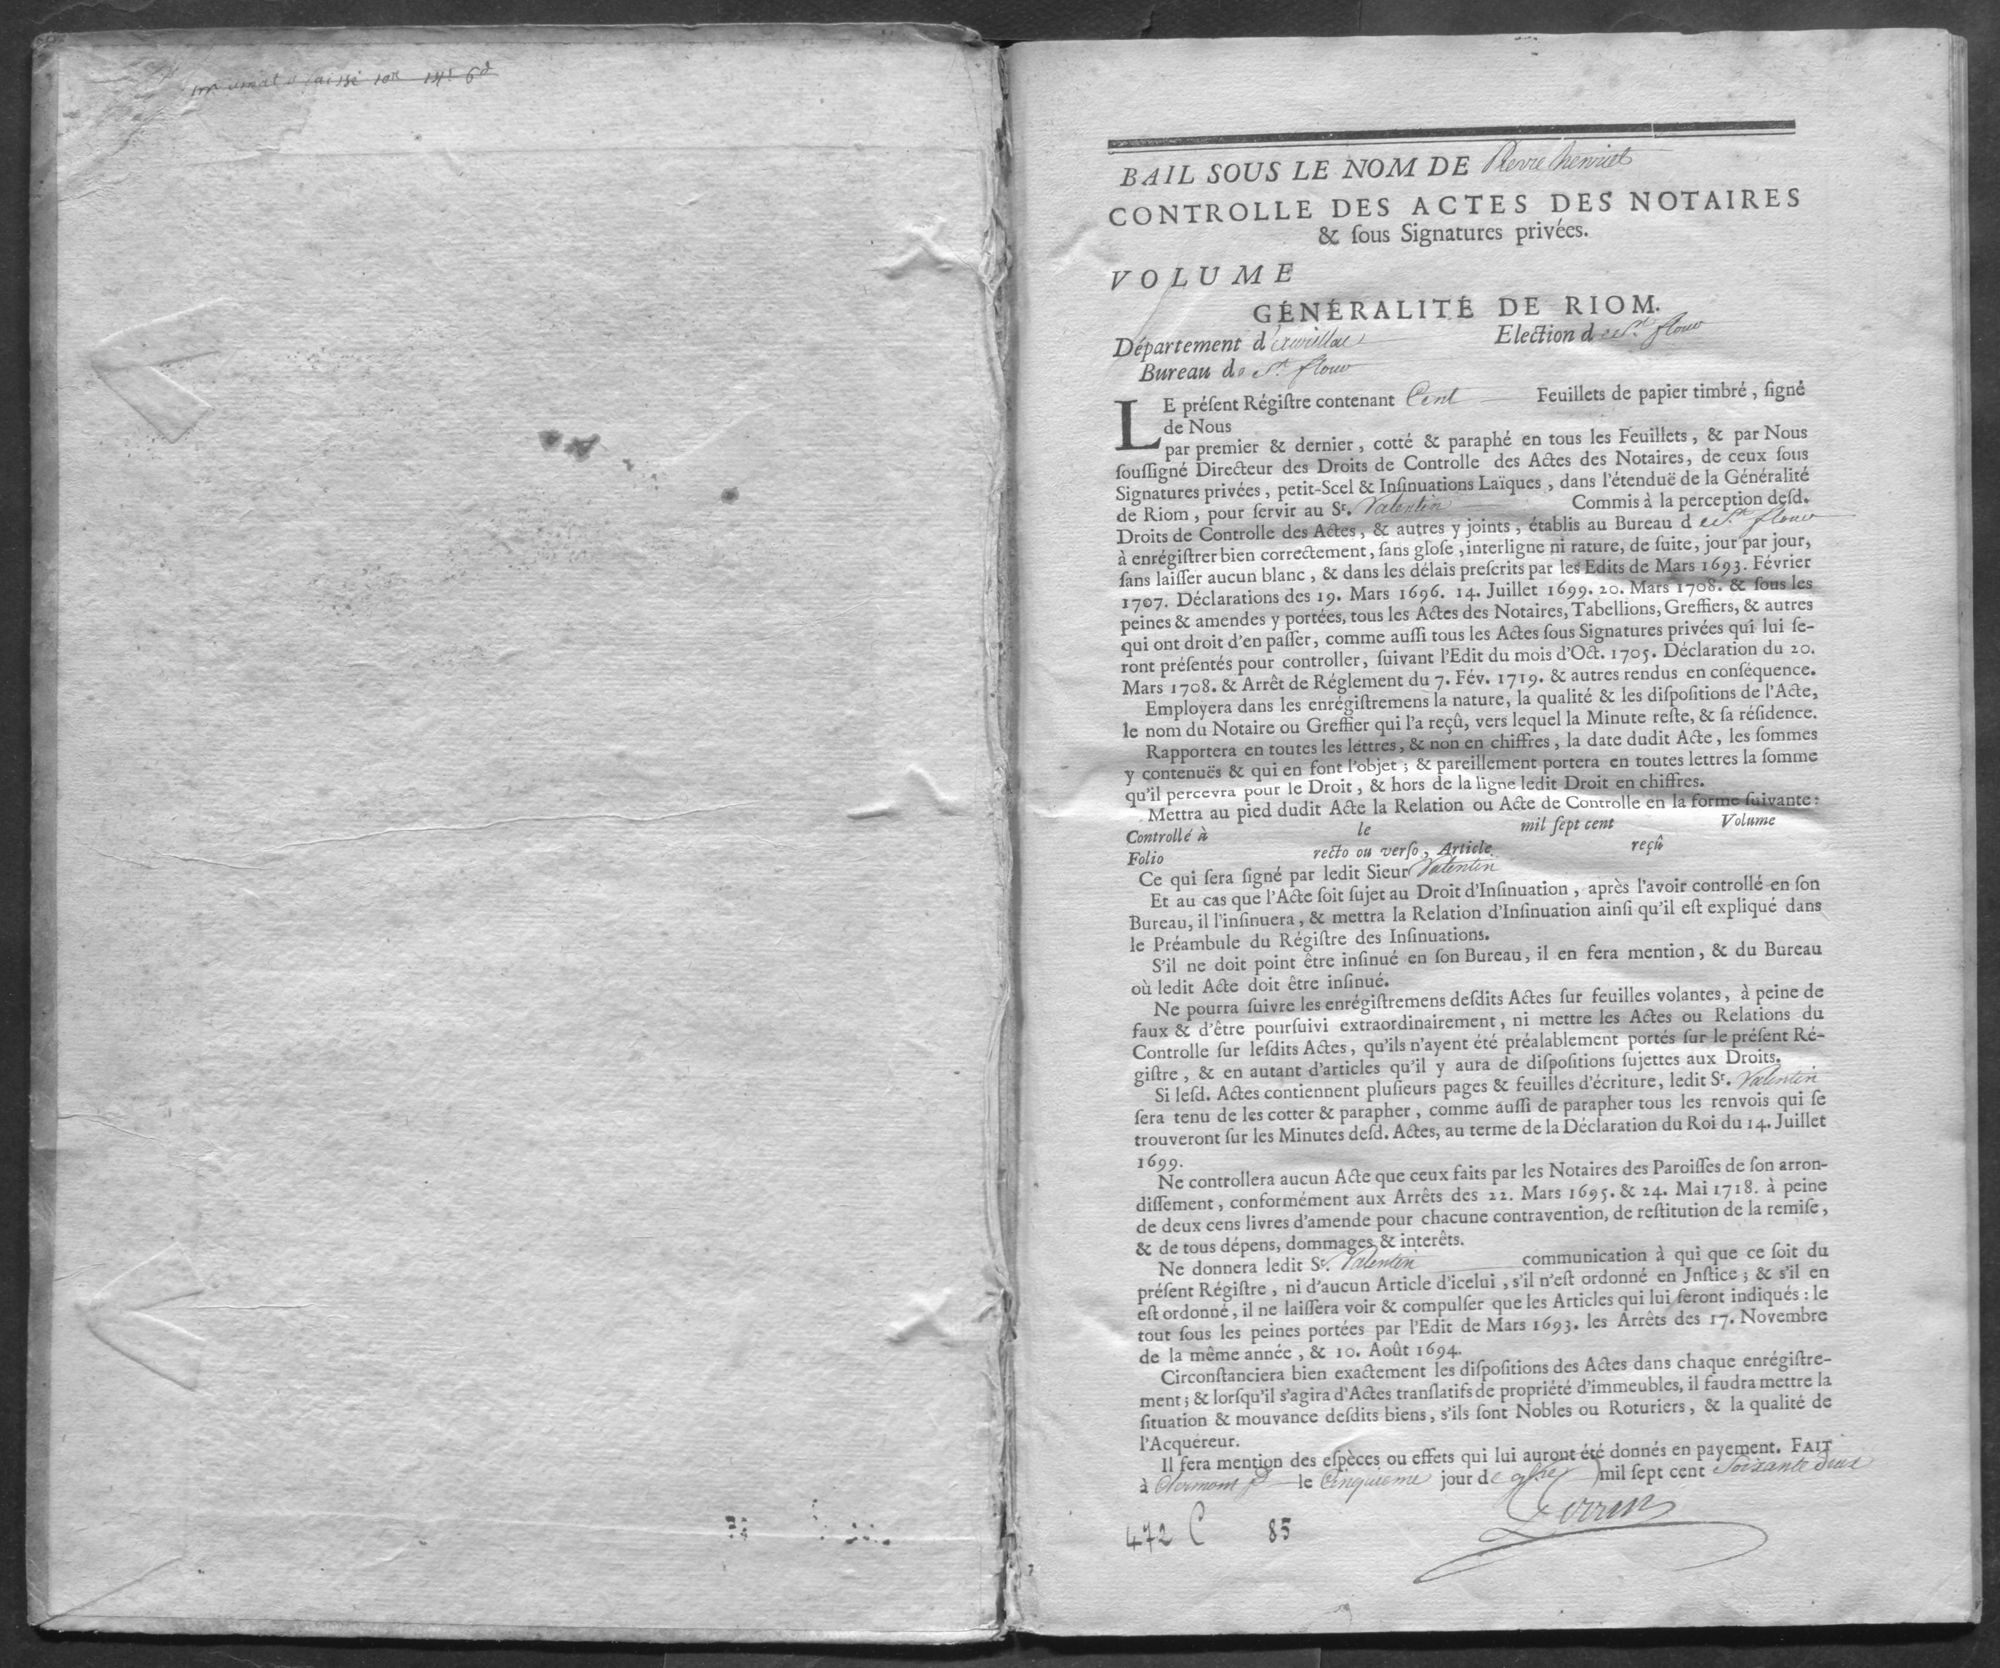 BAIL SOUS LE NOM DE Pierre henriet
CONTROLLE DES ACTES DES NOTAIRES
& ſous Signatures privées.
VOLUME
GÉNÉRALITÉ DE RIOM.
Département d'aurillac Election de St. flour
Bureau de St. flour
LE préſent Régiſtre contenant Cent Feuillets de papier timbré, ſigné
de Nous
par premier & dernier, cotté & paraphé en tous les Feuillets, & par Nous
ſouſſigné Directeur des Droits de Controlle des Actes des Notaires, de ceux ſous
Signatures privées, petit-Scel & Inſinuations Laïques, dans l'étenduë de la Généralité
de Riom, pour ſervir au Sr. Valentin Commis à la perception deſd.
Droits de Controlle des Actes, & autres y joints, établis au Bureau de St. flour
à enrégiſtrer bien correctement, ſans gloſe, interligne ni rature, de ſuite, jour par jour,
ſans laiſſer aucun blanc, & dans les délais preſcrits par les Edits de Mars 1693. Février
1707. Déclarations des 19. Mars 1696. 14. Juillet 1699. 20. Mars 1708. & ſous les
peines & amendes y portées, tous les Actes des Notaires, Tabellions, Greffiers, & autres
qui ont droit d'en paſſer, comme auſſi tous les Actes ſous Signatures privées qui lui ſe-
ront préſentés pour controller, ſuivant l'Edit du mois d'Oct. 1705. Déclaration du 20.
Mars 1708. & Arrêt de Réglement du 7. Fév. 1719. & autres rendus en conſéquence.
Employera dans les enrégiſtremens la nature, la qualité & les diſpoſitions de l'Acte,
le nom du Notaire ou Greffier qui l'a reçû, vers lequel la Minute reſte, & ſa réſidence.
Rapportera en toutes les lettres, & non en chiffres, la date dudit Acte, les ſommes
y contenuës & qui en font l'objet; & pareillement portera en toutes lettres la ſomme
qu'il percevra pour le Droit, & hors de la ligne ledit Droit en chiffres.
Mettra au pied dudit Acte la Relation ou Acte de Controlle en la forme ſuivante:
Controllé à le mil ſept cent Volume
Folio recto ou verſo, Article reçû
Ce qui ſera ſigné par ledit Sieur Valentin
Et au cas que l'Acte ſoit ſujet au Droit d'Inſinuation, après l'avoir controllé en ſon
Bureau, il l'inſinuera, & mettra la Relation d'Inſinuation ainſi qu'il eſt expliqué dans
le Préambule du Régiſtre des Inſinuations.
S'il ne doit point être inſinué en ſon Bureau, il en fera mention, & du Bureau
où ledit Acte doit être inſinué.
Ne pourra ſuivre les enrégiſtremens deſdits Actes ſur feuilles volantes, à peine de
faux & d'être pourſuivi extraordinairement, ni mettre les Actes ou Relations du
Controlle ſur leſdits Actes, qu'ils n'ayent été préalablement portés ſur le préſent Ré-
giſtre, & en autant d'articles qu'il y aura de diſpoſitions ſujettes aux Droits.
Si leſd. Actes contiennent pluſieurs pages & feuilles d'écriture, ledit Sr. Valentin
ſera tenu de les cotter & parapher, comme auſſi de parapher tous les renvois qui ſe
trouveront ſur les Minutes deſd. Actes, au terme de la Déclaration du Roi du 14. Juillet
1699.
Ne controllera aucun Acte que ceux faits par les Notaires des Paroiſſes de ſon arron-
diſſement, conformément aux Arrêts des 22. Mars 1695. & 24. Mai 1718. à peine
de deux cens livres d'amende pour chacune contravention, de reſtitution de la remiſe,
& de tous dépens, dommages & interêts.
Ne donnera ledit Sr. Valentin communication à qui que ce ſoit du
préſent Régiſtre, ni d'aucun Article d'icelui, s'il n'eſt ordonné en Jnſtice; & s'il en
eſt ordonné, il ne laiſſera voir & compulſer que les Articles qui lui ſeront indiqués: le
tout ſous les peines portées par l'Edit de Mars 1693. les Arrêts des 17. Novembre
de la même année, & 10. Août 1694.
Circonſtanciera bien exactement les diſpoſitions des Actes dans chaque enrégiſtre-
ment; & lorſqu'il s'agira d'Actes tranſlatifs de propriété d'immeubles, il faudra mettre la
ſituation & mouvance deſdits biens, s'ils ſont Nobles ou Roturiers, & la qualité de
l'Acquéreur.
Il fera mention des eſpèces ou effets qui lui auront été donnés en payement. FAIT
à Clermont fd le Cinquieme jour de 9bre mil ſept cent Soixante deux
472 C 85